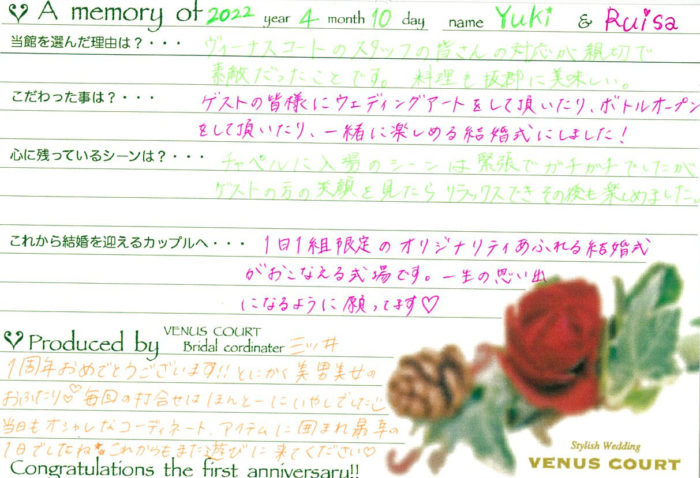 A memory of 2022 year 4 month 10 day name Yuki & Ruisa
当館を選んだ理由は？・・・ ヴィーナスコートのスタッフの皆さんの対応が親切で
素敵だったことです。料理も抜群に美味しい。
こだわった事は？・・・ ゲストの皆様にウェディングアートをして頂いたり、ボトルオープン
をして頂いたり、一緒に楽しめる結婚式にしました！
心に残っているシーンは？・・・ チャペルに入場のシーンは緊張でガチガチでしたが、
ゲストの方の笑顔を見たらリラックスできその後も楽しめました。
これから結婚を迎えるカップルへ・・・ 1日1組限定のオリジナリティあふれる結婚式
がおこなえる式場です。一生の思い出
になるように願ってます♡
Produced by VENUS COURT Bridal cordinater 三ッ井
1周年おめでとうございます!! とにかく美男美女の
おふたり♡ 毎回の打合せはほんとーにいやしでした
当日もオシャレなコーディネート、アイテムに囲まれ最幸の
1日でしたね これからもまた遊びに来てください♡
Congratulations the first anniversary!!
Stylish Wedding
VENUS COURT